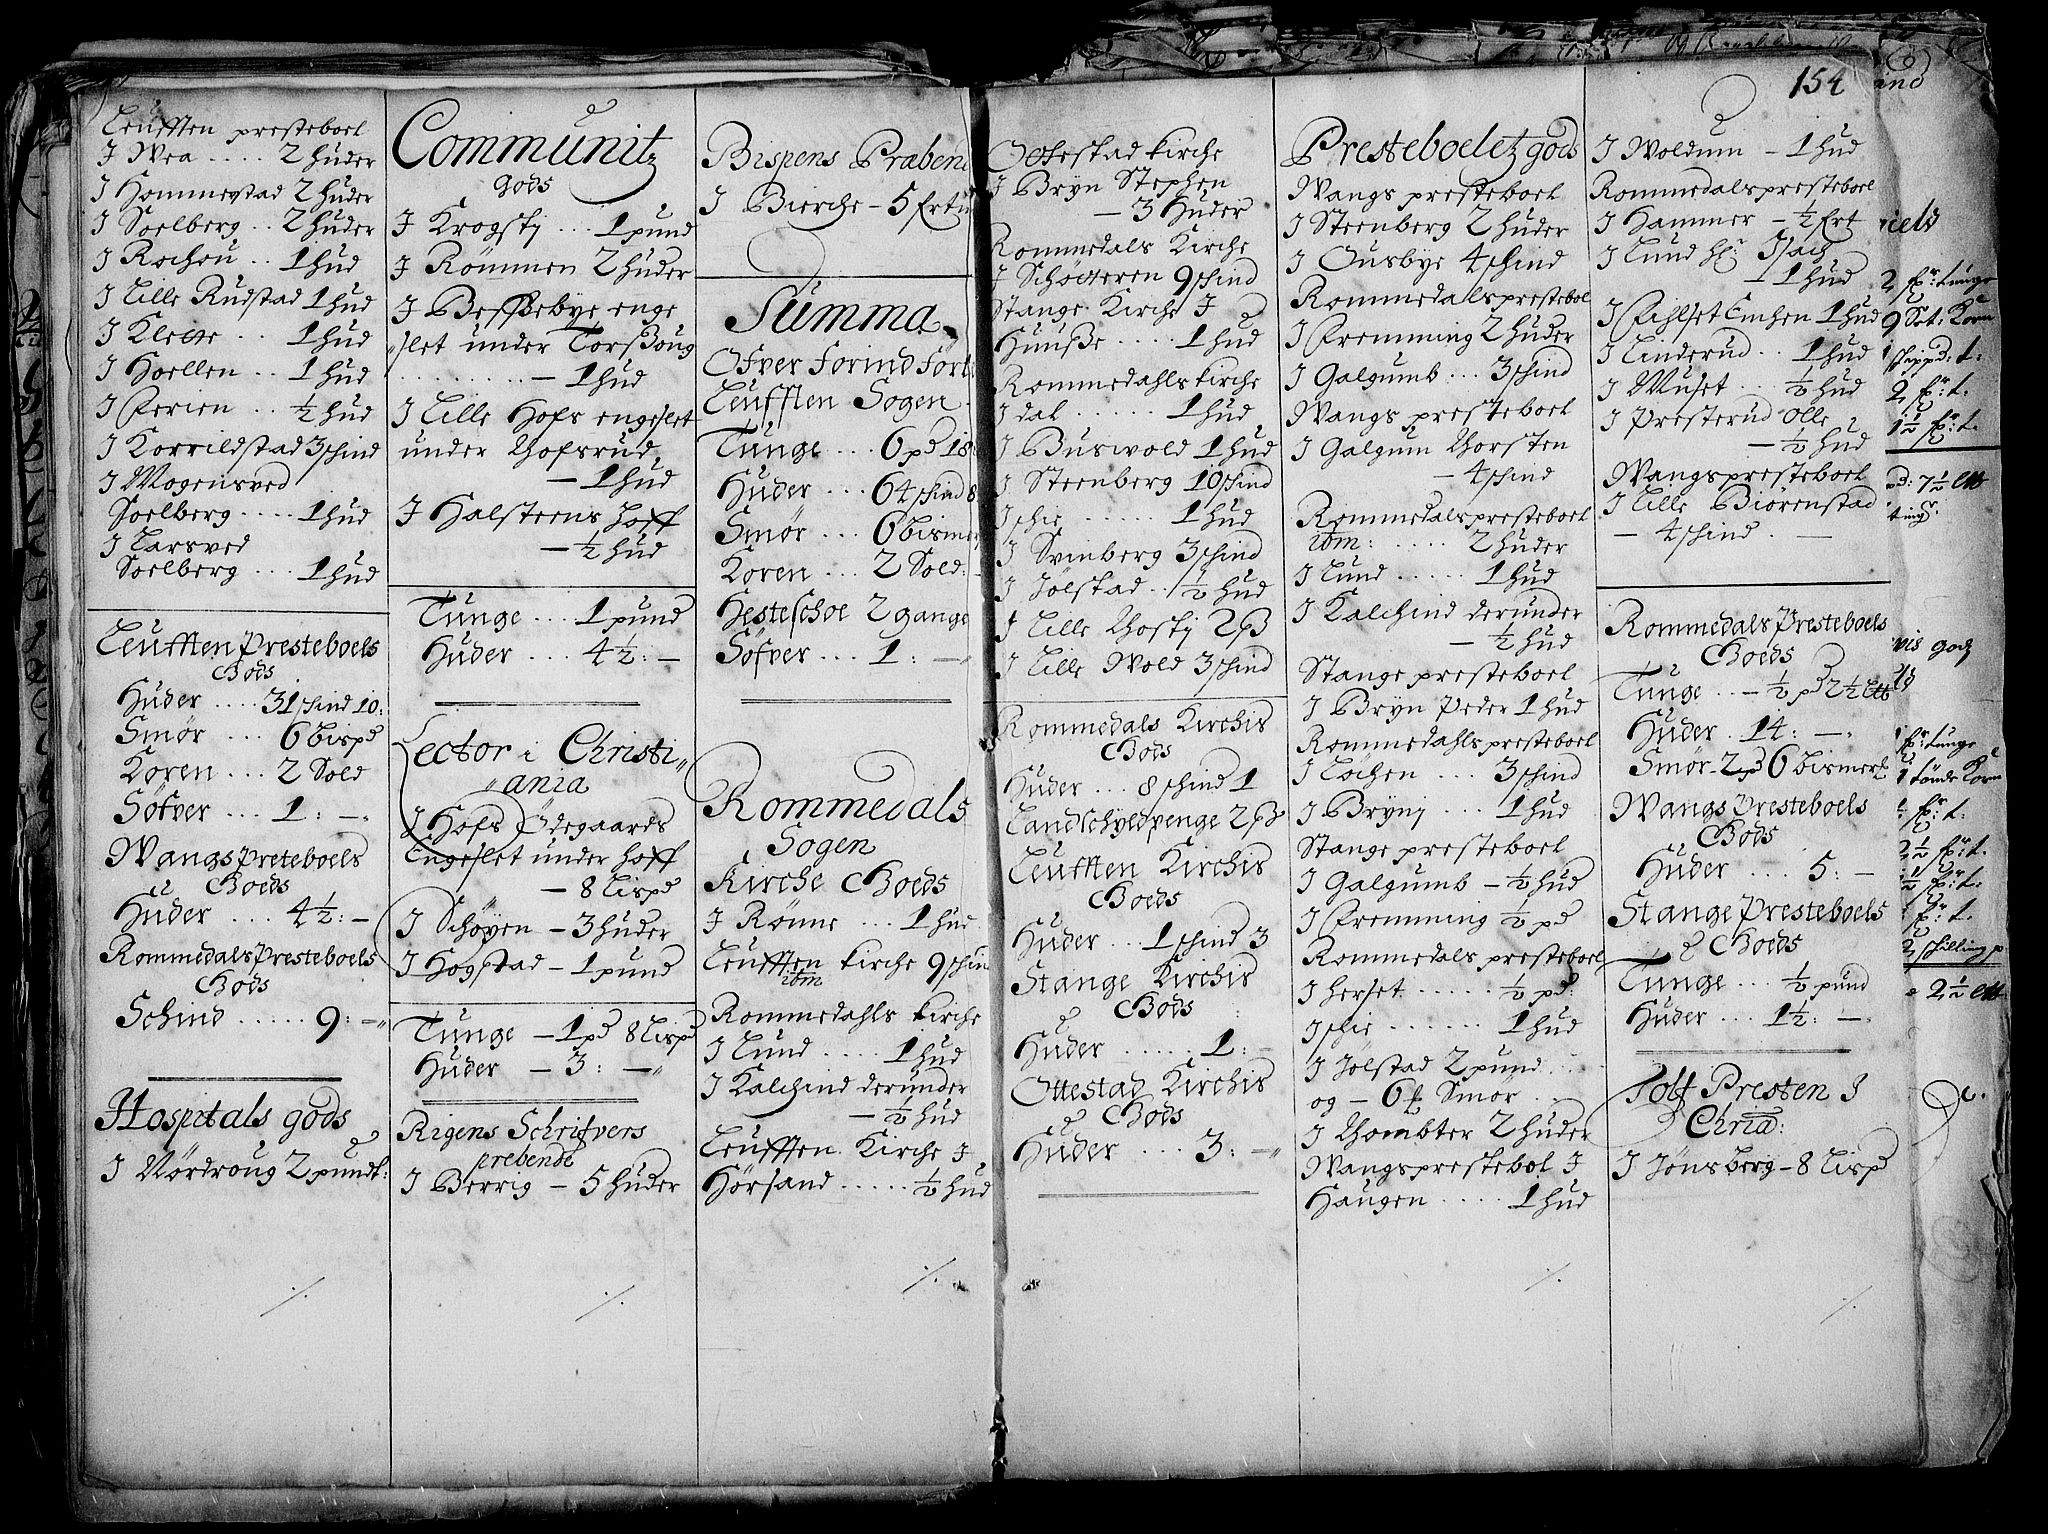 Leufften presteboel
J Wea .... 2 huder
J Hommerstad 2 huder
J Soelberg .. 2 huder
J Rochou .. 1 hud
J Lille Rudstad 1 hud
J Klette .. 1 hud
J Hoellen .. 1 hud
J Ferien .. ½ hud
J Korrildstad 3 schind
J Mogensved
Soelberg .... 1 hud
J Larsved
Soelberg ... 1 hud
Leufften Presteboels
Goeds
Huder .... 31 schind 10:
Smør ... 6 bispd
Koren ... 2 Sold
Søfver ... 1: -
Wangs Presteboels
Goeds
Huder .... 4½: -
Rommedals Presteboels
Goeds
Schind ..... 9: -
Hospitals gods
J Nørdroug 2 pund t:
Communitz
gods
J Krogstj ... 1 pund
J Rømmen 2 huder
J Besssebye enge
slet under Torssoug
........ - 1 hud
J Lille Hofs engeslet
under Hofsrud
- 1 hud
J Halsteens hoff
- ½ hud
Tunge ... 1 pund
Huder ... 4½: -
Lector i Christi
ania
J Hofs Ødegaards
Engeslet under hoff
- 8 Lispd
J Schøyen - 3 huder
J Hogstad - 1 pund
Tunge - 1 pd 8 Lispd
Huder - 3: -
Rigens Schrifvers
prebende
J Berrig - 5 huder
Bispens Præbend
J Bierche - 5 Ertu
Summa
Ofver forindfört
Leufften Sogen
Tunge ... 6 pd 18
Huder ... 64 schind 8
Smør ... 6 bismer
Koren ... 2 Sold:
Hesteschoe 2 gange
Søfver ... 1: -
Rommedals
Sogen
Kirche Goeds
J Rønne ... 1 hud
Leufften kirche 9 schin
ibm
Rommedahls kirche
J Lund .... 1 hud
J Kalchind derunder
- ½ hud
Leufften Kirche J
Hørsand ..... ½ hud
Ottestad kirche
J Bryn Stephen
- 3 huder
Rommedals Kirche
J Schøtteren 9 schind
Stange Kirche J
Huusse .... 1 hud
Rommedahls kirche
J dal ..... 1 hud
J Buswold 1 hud
J Steenberg 10 schind
J schie ...... 1 hud
J Svinberg 3 schind
J Jølstad .. ½ hud
J Lille Hostj 2 ß
J Lille Wold 3 schind
Rommedals Kirchis
Goeds
Huder ... 8 schind 1
Landschyldpenge 2 ß
Leufften Kirchis
Goeds
Huder ... 1 schind 3
Stange Kirchis
Goeds
Huder ..... 1: -
Ottestad Kirchis
Goeds
Huder ... 3: -
Presteboeletz gods
Wangs presteboel
J Steenberg 2 huder
J Ousbye 4 schind
Rommedals prestebol
J Fremming 2 huder
J Galgumb ... 3 schind
Wangs presteboel
J Galgum Thorsten
- 4 schind
Rommedals presteboel
ibm: ..... 2 huder
J Lund ..... 1 hud
J Kalchind derunder
- ½ hud
Stange presteboel
J Bryn Peder 1 hud
Rommedahls presteboel
J Løchen ... 3 schind
J Brynj ... 1 hud
Stange presteboel
J Galgumb - ½ hud
J Fremming ½ pd
Rommedals presteboel
J herset ..... ½ pd:
J schie ...... 1 hud
J Jølstad 2 pund
og - 6 Smør
J Thombter 2 huder
Wangs prestebol J
Haugen .... 1 hud
154
J Woldum - 1 hud
Rommedals presteboel
J Hammer - ½ Ert
J Lund hr Isach
- 1 hud
J Fihlset Einchen 1 hud
J Linderud .. 1 hud
J Muset ... ½ hud
J Presterud Olle
- ½ hud
Wangs presteboel
J Lille Biørenstad
- 4 schind -
Rommedals Presteboels
Goeds
Tunge .. - ½ pd 2½ Ltt
Huder . 14: -
Smør - 2 pd 6 bismerk
Wangs Presteboels
Goeds
Huder ... 5: -
Stange Presteboels
Goeds
Tunge ... ½ pund
Huder ... 1½: -
Tolf Presten J
Chria:
J Jønsberg - 8 Lispd